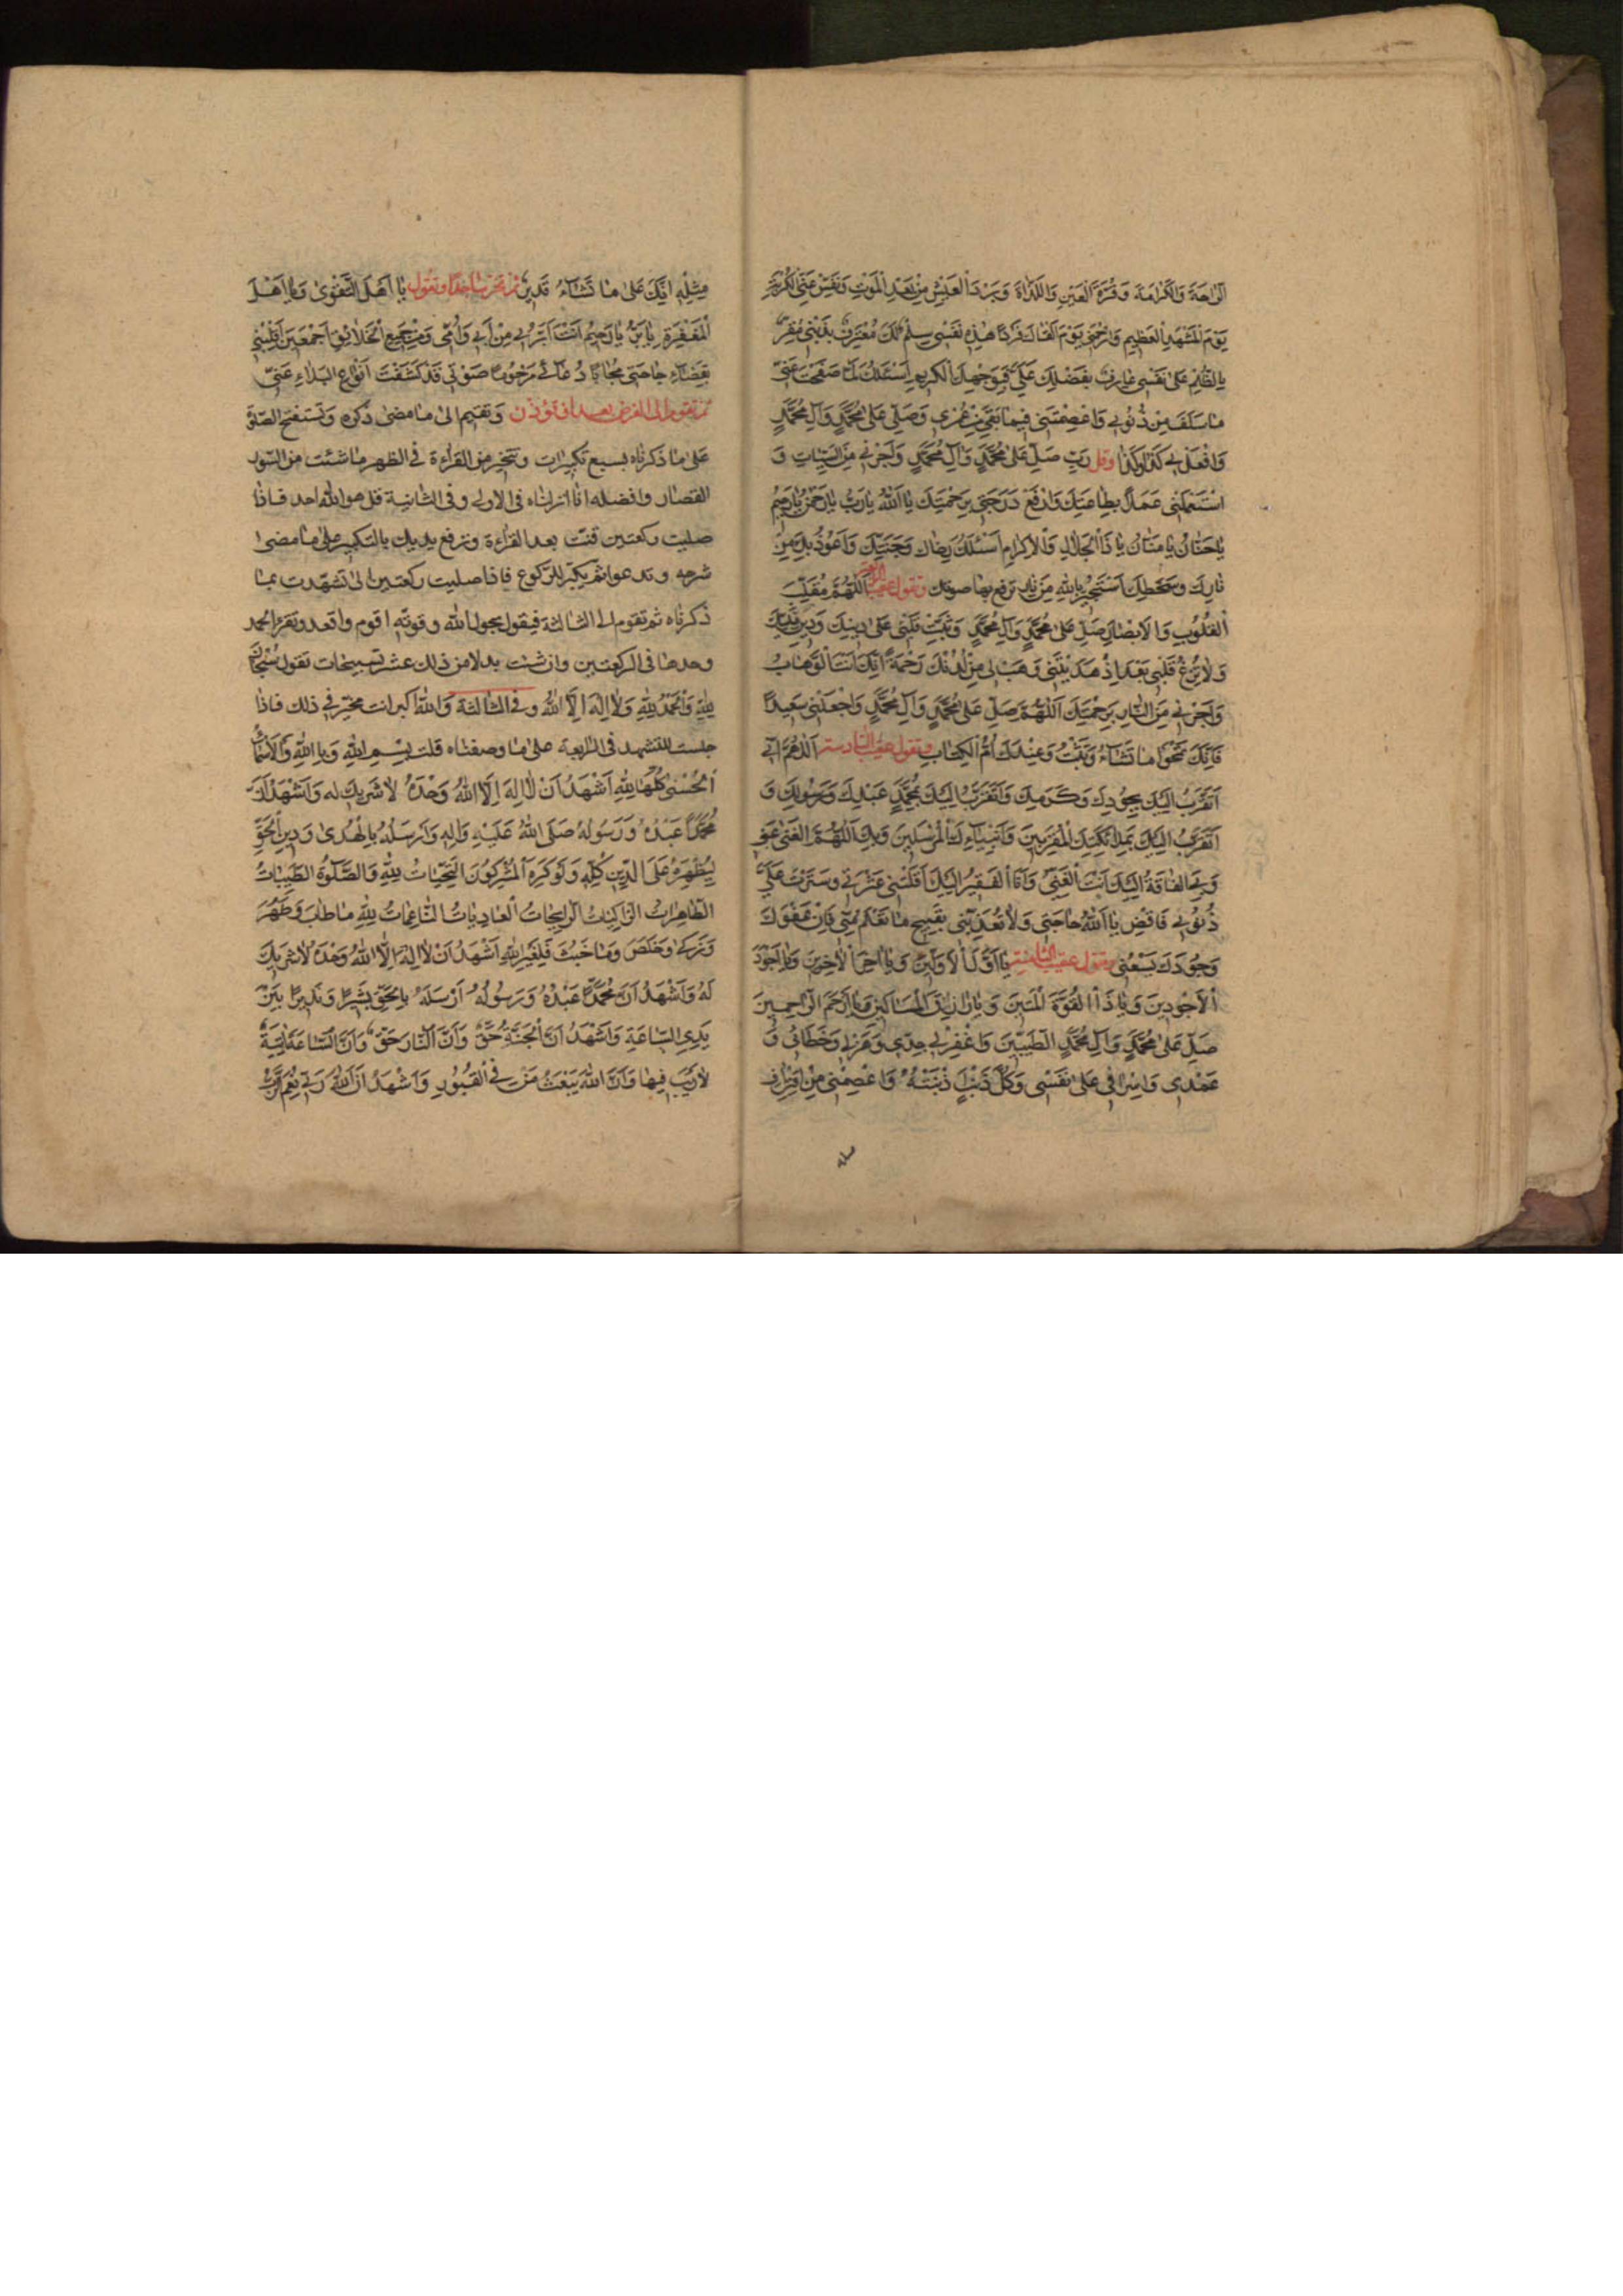 الرَّاحَةَ وَالْكَرَامَةَ وَقُرَّةَ الْعَيْنِ وَاللَّذَاذَةَ وَبَرْدَ الْعَيْشِ مِنْ بَعْدِ الْمَوْتِ وَنَفِّسْ عَنِّي الْكُرْبَةَ
يَوْمَ الْمَشْهَدِ الْعَظِيمِ وَارْحَمْنِي يَوْمَ الْقَاكَ فَرْدًا هٰذِهِ نَفْسِي سِلْمٌ لَكَ مُعْتَرِفٌ بِذَنْبِي مُقِرٌّ
بِالظُّلْمِ عَلَى نَفْسِي عَارِفٌ بِفَضْلِكَ عَلَيَّ فَبِوَجْهِكَ الْكَرِيمِ اَسْئَلُكَ لَمَّا صَفَحْتَ عَنِّي
مَا سَلَفَ مِنْ ذُنُوبِي وَاعْصِمْنِي فِيمَا بَقِيَ مِنْ عُمْرِي وَصَلِّ عَلٰى مُحَمَّدٍ وَآلِ مُحَمَّدٍ
وَافْعَلْ بِي كَذَا وَكَذَا وقل رَبِّ صَلِّ عَلٰى مُحَمَّدٍ وَآلِ مُحَمَّدٍ وَاَجِرْنِي مِنَ السَّيِّئَاتِ وَ
اسْتَعْمِلْنِي عَمَلًا بِطَاعَتِكَ وَارْفَعْ دَرَجَتِي بِرَحْمَتِكَ يَا اَللّٰهُ يَارَبُّ يَارَحْمٰنُ يَارَحِيمُ
يَاحَنَّانُ يَا مَنَّانُ يَا ذَا الْجَلَالِ وَالْاِكْرَامِ اَسْئَلُكَ رِضَاكَ وَجَنَّتَكَ وَاَعُوذُ بِكَ مِنْ
نَارِكَ وَسَخَطِكَ اَسْتَجِيرُ بِاللّٰهِ مِنَ النَّارِ ترفع بها صوتك وتقول عقيب الرابعة اَللّٰهُمَّ مُقَلِّبَ
الْقُلُوبِ وَالْاَبْصَارِ صَلِّ عَلٰى مُحَمَّدٍ وَآلِ مُحَمَّدٍ وَثَبِّتْ قَلْبِي عَلٰى دِينِكَ وَدِينِ نَبِيِّكَ
وَلَا تُزِغْ قَلْبِي بَعْدَ اِذْ هَدَيْتَنِي وَهَبْ لِي مِنْ لَدُنْكَ رَحْمَةً اِنَّكَ اَنْتَ الْوَهَّابُ
وَاَجِرْنِي مِنَ النَّارِ بِرَحْمَتِكَ اَللّٰهُمَّ صَلِّ عَلٰى مُحَمَّدٍ وَآلِ مُحَمَّدٍ وَاجْعَلْنِي سَعِيدًا
فَاِنَّكَ تَمْحُوا مَا تَشَاءُ وَتُثْبِتُ وَعِنْدَكَ اُمُّ الْكِتَابِ وتقول عقيب السادسة اَللّٰهُمَّ اِنِّي
اَتَقَرَّبُ اِلَيْكَ بِجُودِكَ وَكَرَمِكَ وَاَتَقَرَّبُ اِلَيْكَ بِمُحَمَّدٍ عَبْدِكَ وَرَسُولِكَ وَ
اَتَقَرَّبُ اِلَيْكَ بِمَلَائِكَتِكَ الْمُقَرَّبِينَ وَاَنْبِيَاءِكَ الْمُرْسَلِينَ وَبِكَ اَللّٰهُمَّ الْغِنٰى عَنِّي
وَبِيَ الْفَاقَةُ اِلَيْكَ اَنْتَ الْغَنِيُّ وَاَنَا الْفَقِيرُ اِلَيْكَ اَقَلْتَنِي عَثْرَتِي وَسَتَرْتَ عَلَيَّ
ذُنُوبِي فَاقْضِ يَا اَللّٰهُ حَاجَتِي وَلَا تُعَذِّبْنِي بِقَبِيحِ مَا تَعْلَمُ مِنِّي فَاِنَّ عَفْوَكَ
وَجُودَكَ يَسَعُنِي وتقول عقيب الثامنة يَا اَوَّلَ الْاَوَّلِينَ وَيَا اٰخِرَ الْاٰخِرِينَ وَيَا اَجْوَدَ
الْاَجْوَدِينَ وَيَا ذَا الْقُوَّةِ الْمَتِينَ وَيَا رَازِقَ الْمَسَاكِينِ وَيَا اَرْحَمَ الرَّاحِمِينَ
صَلِّ عَلٰى مُحَمَّدٍ وَآلِ مُحَمَّدٍ الطَّيِّبِينَ وَاغْفِرْ لِي جِدِّي وَهَزْلِي وَخَطَائِي وَ
عَمْدِي وَاِسْرَافِي عَلٰى نَفْسِي وَكُلَّ ذَنْبٍ اَذْنَبْتُهُ وَاعْصِمْنِي مِنِ اقْتِرَافِ
مِثْلِهِ اِنَّكَ عَلٰى مَا تَشَاءُ قَدِيرٌ ثم تخر ساجدا وتقول يَا اَهْلَ التَّقْوٰى وَيَا اَهْلَ
الْمَغْفِرَةِ يَا بَرُّ يَا رَحِيمُ اَنْتَ اَبَرُّ بِي مِنْ اَبِي وَاُمِّي وَمِنْ جَمِيعِ الْخَلَائِقِ اَجْمَعِينَ اَقْلِبْنِي
بِقَضَاءِ حَاجَتِي مُجَابًا دُعَائِي مَرْحُومًا صَوْتِي قَدْ كَشَفْتَ اَنْوَاعَ الْبَلَاءِ عَنِّي
ثم تقوم الى الفرض بعد ان تؤذن وتقيم الى ما مضى ذكره وتستفتح الصلوة
على ما ذكرناه بسبع تكبيرات وتتخير من القراءة في الظهر ما شئت من السور
القصار وافضله انا انزلناه في الاولى وفي الثانية قل هو الله احد فاذا
صليت ركعتين قنت بعد القراءة وترفع يديك بالتكبير على ما مضى
شرحه وتدعوا ثم يكبر للركوع فاذا صليت ركعتين الى تشهدت بما
ذكرناه ثم تقوم الى الثالثة فيقول بحول الله وقوته اقوم واقعد وتقرء الحمد
وحدها في الركعتين وان شئت بدلا من ذلك عشر تسبيحات تقول سُبْحَانَ
لِلّٰهِ وَالْحَمْدُ لِلّٰهِ وَلَا اِلٰهَ اِلَّا اللّٰهُ وفي الثالثة وَاللّٰهُ اَكْبَرُ انت مخير في ذلك فاذا
جلست للتشهد في الرابعة على ما وصفناه قلت بِسْمِ اللّٰهِ وَبِاللّٰهِ وَالْاَسْمَاءُ
الْحُسْنٰى كُلُّهَا لِلّٰهِ اَشْهَدُ اَنْ لَا اِلٰهَ اِلَّا اللّٰهُ وَحْدَهُ لَا شَرِيكَ لَهُ وَاَشْهَدُ اَنَّ
مُحَمَّدًا عَبْدُهُ وَرَسُولُهُ صَلَّى اللّٰهُ عَلَيْهِ وَاٰلِهِ وَاَرْسَلَهُ بِالْهُدٰى وَدِينِ الْحَقِّ
لِيُظْهِرَهُ عَلَى الدِّينِ كُلِّهِ وَلَوْ كَرِهَ الْمُشْرِكُونَ التَّحِيَّاتُ لِلّٰهِ وَالصَّلَوةُ الطَّيِّبَاتُ
الطَّاهِرَاتُ الزَّاكِيَاتُ الرَّايِحَاتُ الْغَادِيَاتُ النَّاعِمَاتُ لِلّٰهِ مَا طَابَ وَطَهُرَ
وَزَكٰى وَخَلَصَ وَمَا خَبُثَ فَلِغَيْرِ اللّٰهِ اَشْهَدُ اَنْ لَا اِلٰهَ اِلَّا اللّٰهُ وَحْدَهُ لَا شَرِيكَ
لَهُ وَاَشْهَدُ اَنَّ مُحَمَّدًا عَبْدُهُ وَرَسُولُهُ اَرْسَلَهُ بِالْحَقِّ بَشِيرًا وَنَذِيرًا بَيْنَ
يَدَيِ السَّاعَةِ وَاَشْهَدُ اَنَّ الْجَنَّةَ حَقٌّ وَاَنَّ النَّارَ حَقٌّ وَاَنَّ السَّاعَةَ اٰتِيَةٌ
لَا رَيْبَ فِيهَا وَاَنَّ اللّٰهَ يَبْعَثُ مَنْ فِي الْقُبُورِ وَاَشْهَدُ اَنَّ اللّٰهَ رَبِّي نِعْمَ الرَّبُّ